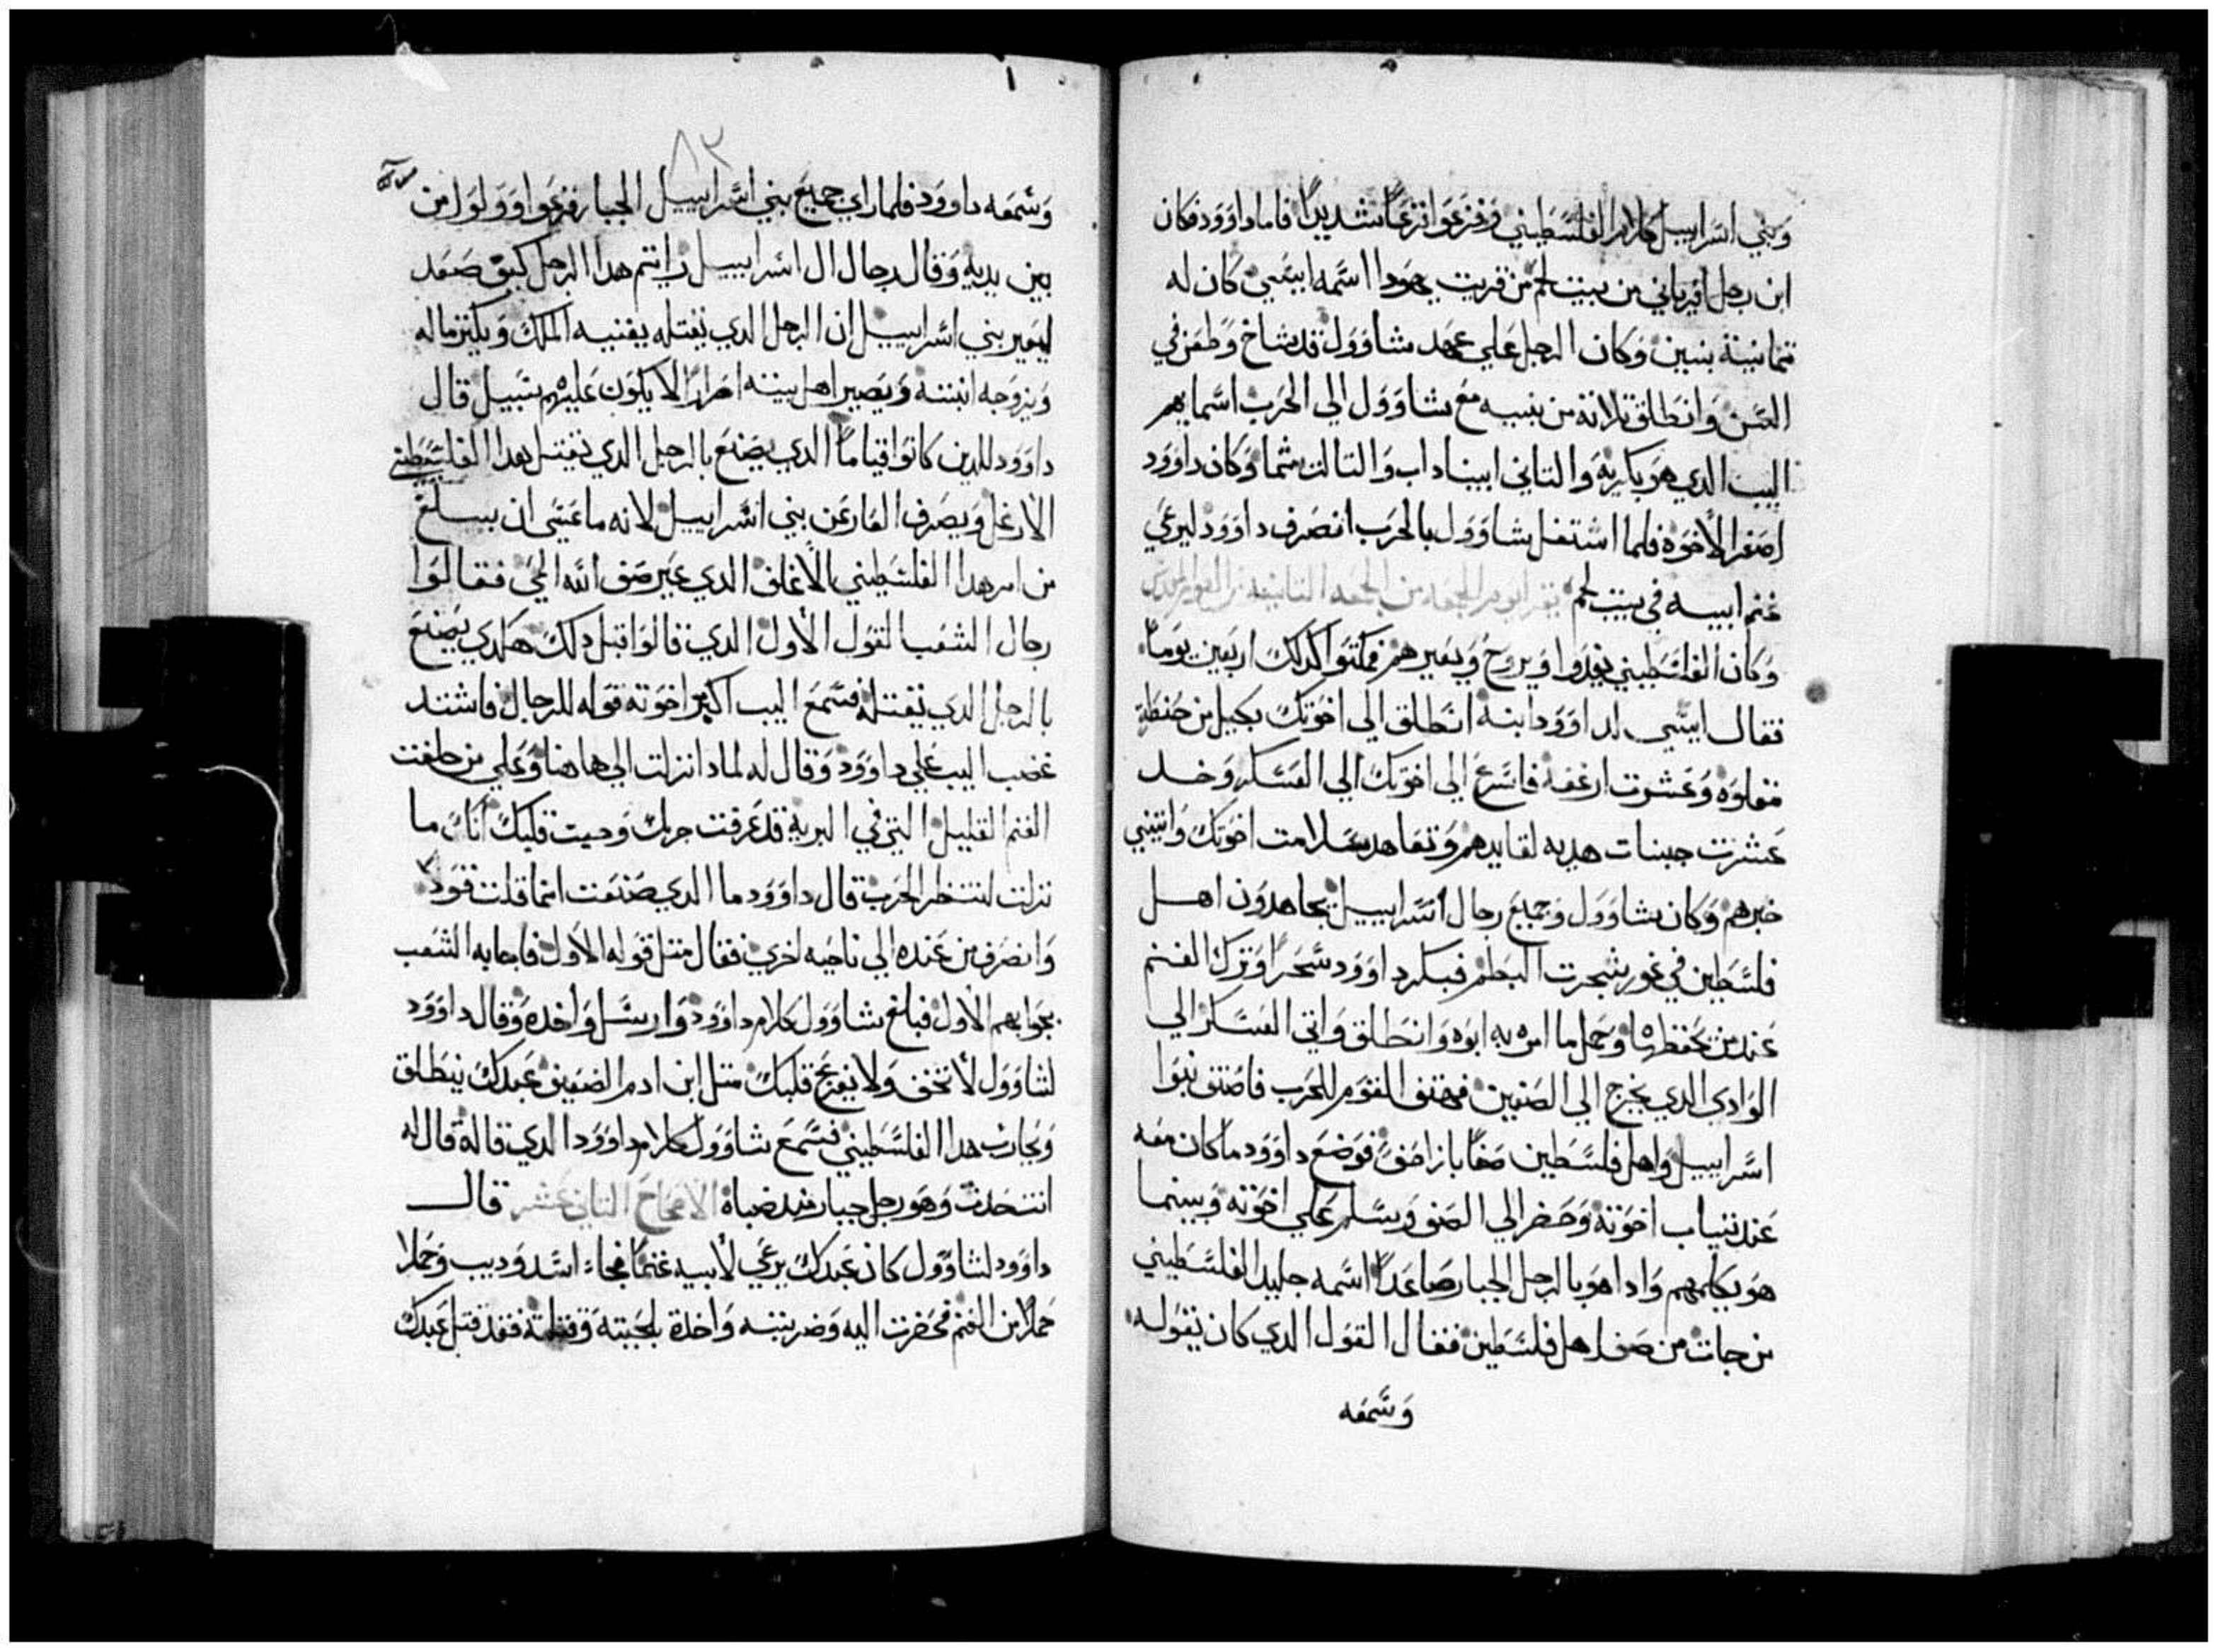 وبني اسراييل كلام الفلسطيني وفزعوا فزعًا شديدًا فاما داوود فكان
ابن رجل افرياني من بيت لحم من قريت يهودا اسمه ايسي كان له
تمانية بنين وكان الرجل علي عهد شاوول قد شاخ وطعن في
السن وانطلق تلاتة من بنيه مع شاوول الي الحرب اسمايهم
اليب الدي هو بكريه والتاني ابيناداب والتالت شما وكان داوود
اصغر الاخوة فلما اشتغل شاوول بالحرب انصرف داوود ليرعي
غنم ابيه في بيت لحم يقرا يوم الجمعه من الجمعه التانيه من الصوم المقدس
وكان الفلسطيني يغدوا ويروح ويعيرهم فمكتوا كدلك اربعين يومًا
فقال ايسي لداوود ابنه انطلق الي اخوتك بكيل من حنطة
مقلوه وعشرت ارغفه فاسرع الي اخوتك الي العسكر وخد
عشرت جبنات هديه لقايدهم وتعاهد سلامت اخوتك واتيني
خبرهم وكان شاوول وجميع رجال اسراييل يجاهدون اهل
فلسطين في غور شجرت البطم فبكر داوود سحرًا وترك الغنم
عند من يحفظها وحمل ما امره به ابوه وانطلق واتي العسكر الي
الوادي الدي يخرج الي الصفين فهتف القوم للحرب فاصتف بنوا
اسراييل واهل فلسطين صفًا بازا صف فوضع داوود ما كان معه
عند تياب اخوته وحضر الي الصف وسلم علي اخوته وبينما
هو يكلمهم وادا هو بالرجل الجبار صاعدًا اسمه جليد الفلسطيني
من جات من صف اهل فلسطين فقال القول الدي كان يقوله
وسمعه
٨٢
وسمعه داوود فلما راي جميع بني اسراييل الجبار فزعوا وولوا من
بين يديه وقال رجال ال اسراييل رايتم هدا الرجل كيف صعد
ليعير بني اسراييل ان الرجل الدي يقتله يغنيه الملك ويكتر ماله
ويزوجه ابنته ويصير اهل بيته احرارًا لا يكون عليهم سبيل قال
داوود للدين كانوا قيامًا الدي يصنع بالرجل الدي يقتل هدا الفلسطيني
الارغل ويصرف العار عن بني اسراييل لانه ما عسي ان يبلغ
من امر هدا الفلسطيني الاغلف الدي عير صف الله الحي فقالوا
رجال الشعب القول الاول الدي قالوا قبل دلك هكدي يصنع
بالرجل الدي يقتله فسمع اليب اكبر اخوته قوله للرجال فاشتد
غضب اليب علي داوود وقال له لمادا نزلت الي هاهنا وعلي من خلفت
الغنم القليل التي في البرية قد عرفت جراتك وحيت قلبك انك ما
نزلت لتنتظر الحرب قال داوود ما الدي صنعت انما قلت قولا
وانصرف من عنده الي ناحيه اخري فقال متل قوله الاول فاجابه الشعب
بجوابهم الاول فبلغ شاوول كلام داوود وارسل واخده وقال داوود
لشاوول لا تخف ولا يفزع قلبك متل ابن ادم الضعيف عبدك ينطلق
ويحارب هدا الفلسطيني فسمع شاوول كلام داوود الدي قاله قال له
انت حدت وهو رجل جبار مند صباه الاصحاح التاني عشر قال
داوود لشاوول كان عبدك يرعي لابيه غنمًا فجاء اسد وديب وحملا
حملًا من الغنم فحضرت اليه وضربته واخدة بلحيته وقتلته فقد قتل عبدك